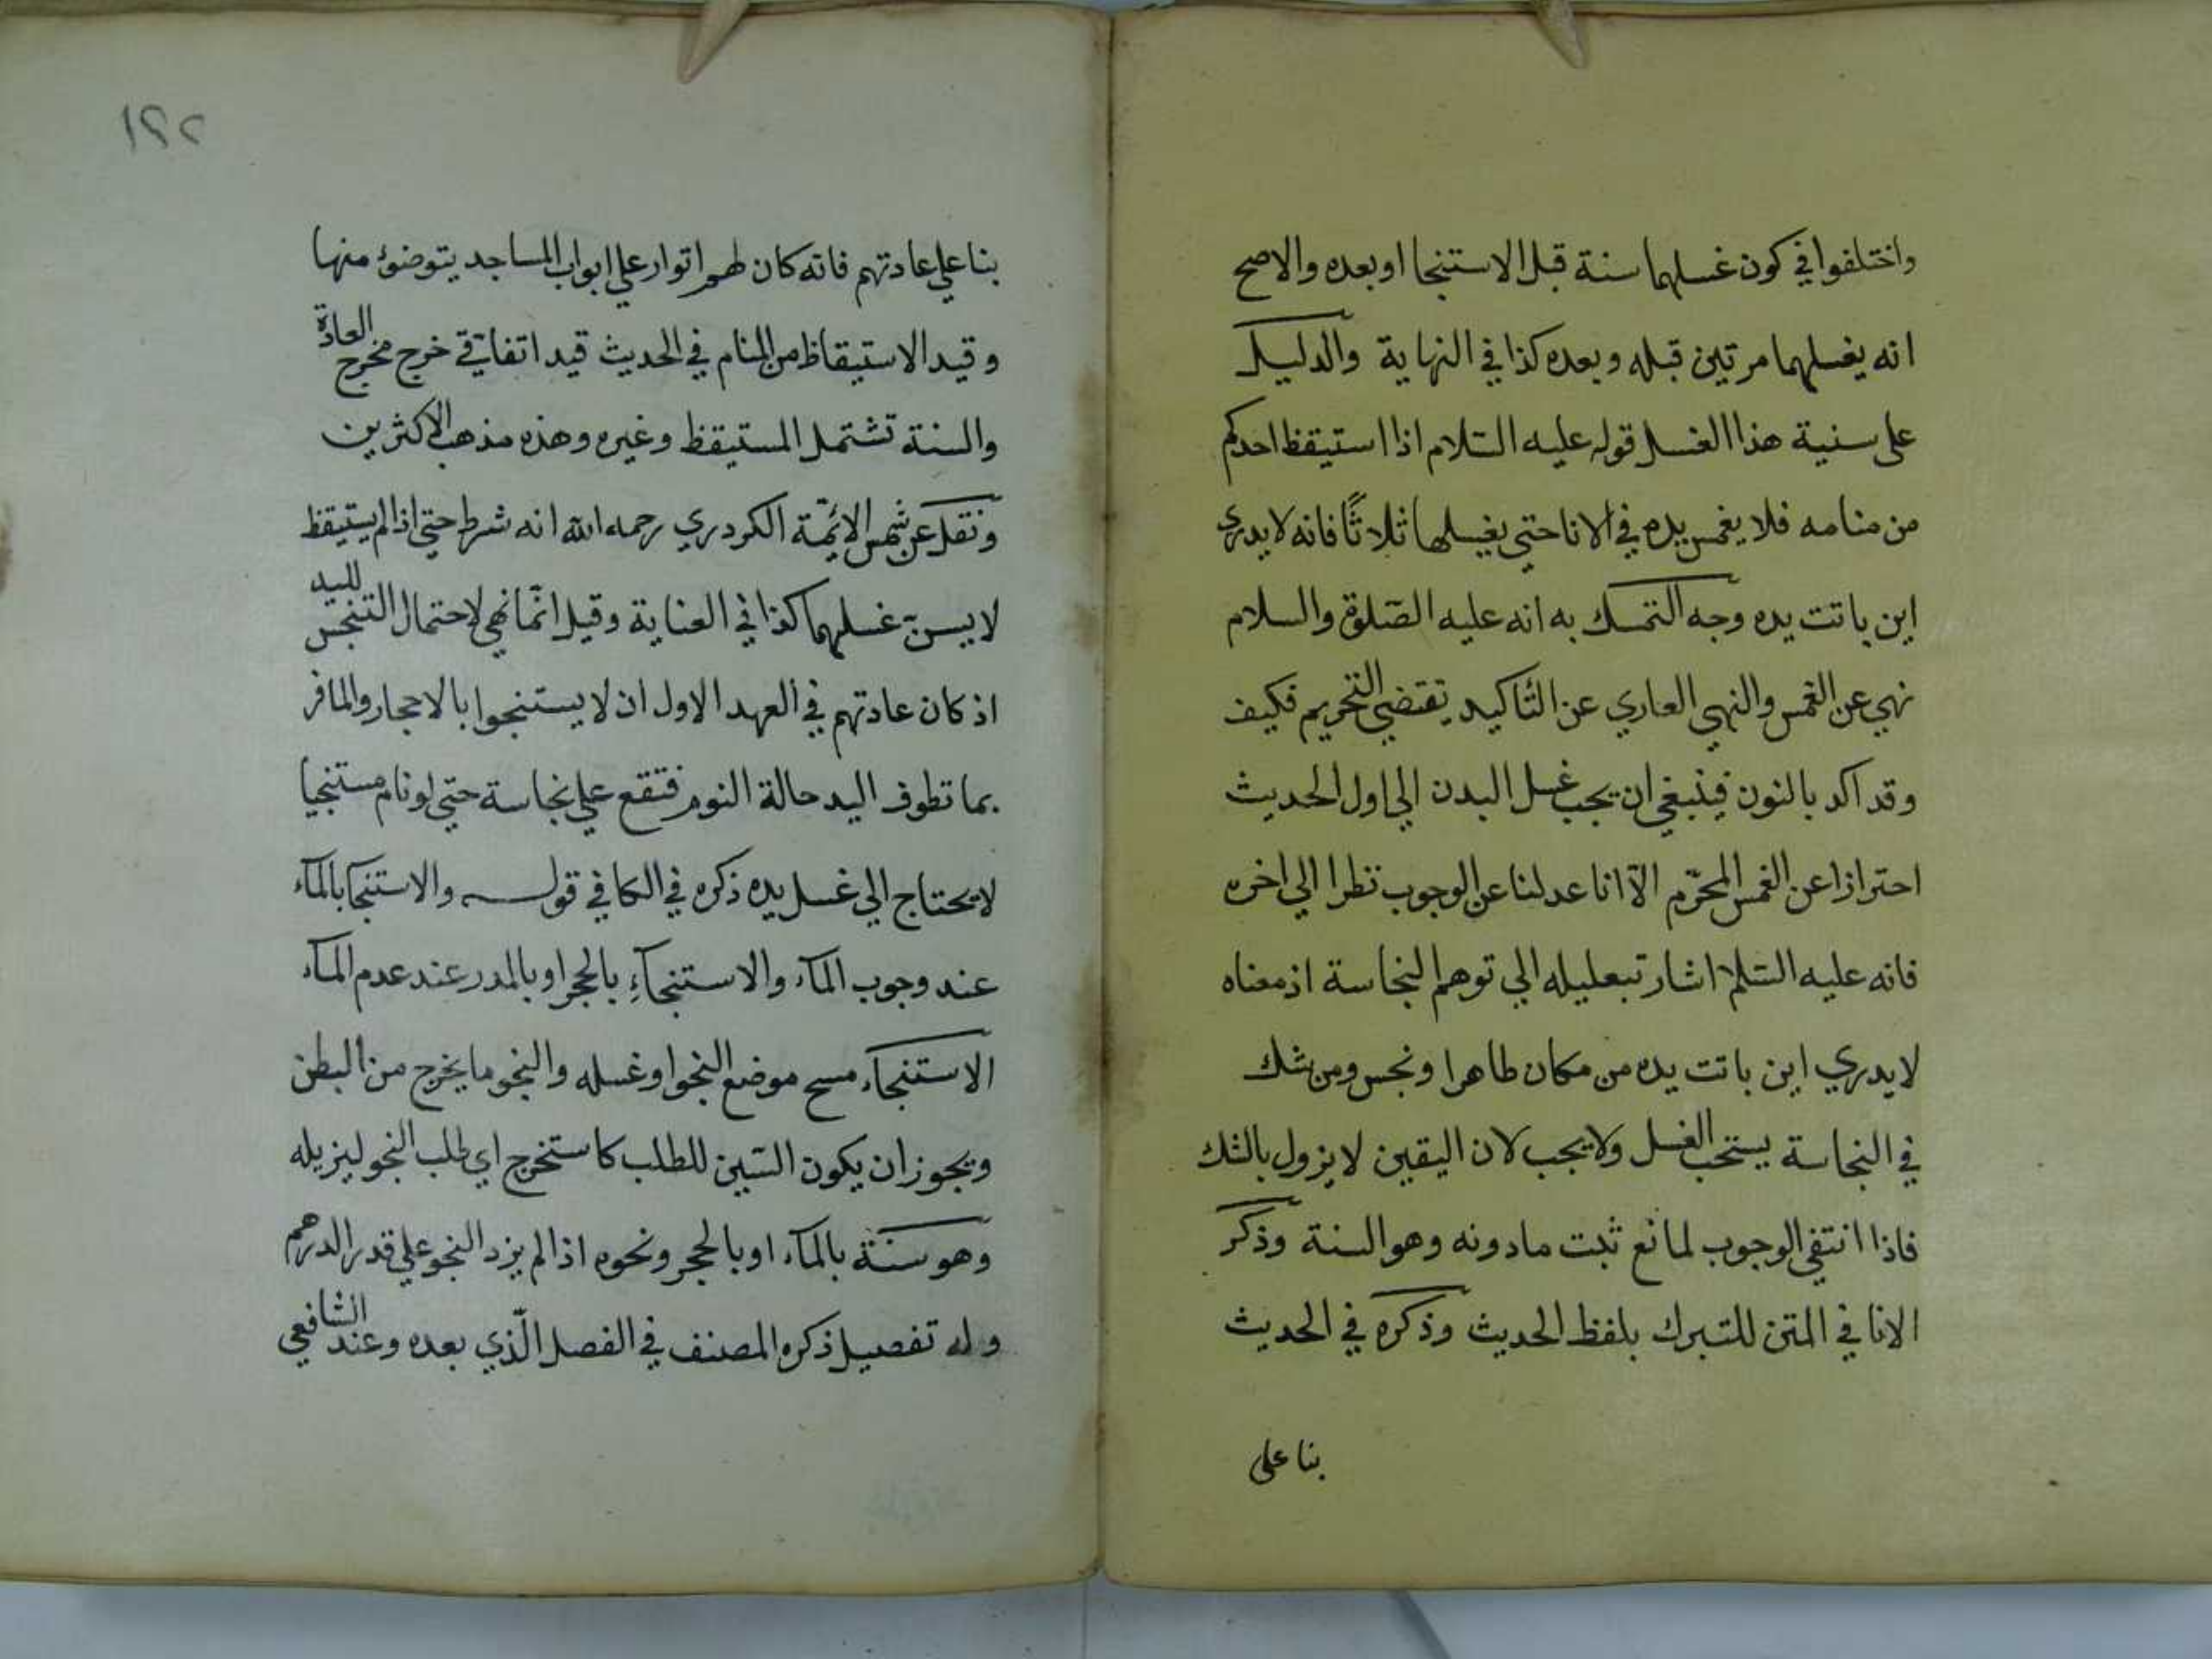 واختلفوا في كون غسلهما سنة قبل الاستنجا او بعده والاصح
انه يغسلهما مرتين قبله وبعده كذا في النهاية والدليل
على سنية هذا الغسل قوله عليه السّلام اذا استيقظ احدكم
من منامه فلا يغمس يده في الانا حتى يغسلها ثلاثًا فانه لا يدري
اين باتت يده وجه التمسك به انه عليه الصّلوة والسلام
نهي عن الغمس والنهي العاري عن التّاكيد يقتضي التحريم فكيف
وقد اكد بالنون فينبغي ان يجب غسل اليدن الي اول الحديث
احترازا عن الغمس المحرّم الاّ انا عدلنا عن الوجوب نظرا الي اخره
فانه عليه السّلام اشار تبعليله الي توهم النجاسة اذ معناه
لا يدري اين باتت يده من مكان طاهر او نجس ومن شك
في النجاسة يستحب الغسل ولا يجب لان اليقين لا يزول بالشك
فاذا انتفي الوجوب لمانع ثبت مادونه وهو السنة وذكر
الانا في المتن للتبرك بلفظ الحديث وذكره في الحديث
بنا على
١٢٢
بنا علي عادتهم فانه كان لهم اتوار علي ابواب المساجد يتوضؤ منها
وقيد الاستيقاظ من المنام في الحديث قيد اتفاقي خرج مخرج العادة
والسنة تشتمل المستيقظ وغيره وهذه مذهب الاكثرين
ونقل عن شمس الائمّة الكردري رحمه الله انه شرط حتي اذا لم يستيقظ
لا يسنّ غسلهما كذا في العناية وقيل انّما نهي لاحتمال التنجس لليد
اذ كان عادتهم في العهد الاول ان لا يستنجوا بالاحجار والما فر
بما تطوف اليد حالة النوم فتقع علي نجاسة حتي لو نام مستنجيا
لا يحتاج الي غسل يده ذكره في الكافي قوله والاستنجا بالمآء
عند وجوب المآء والاستنجآءِ بالحجر او بالمدر عند عدم المآء
الاستنجآء مسح موضع النجو او غسله والنجو ما يخرج من البطن
ويجوز ان يكون السّين للطلب كاستخرج اي طلب النجو ليزيله
وهو سنّة بالمآء او بالحجر ونحوه اذا لم يزد النجو علي قدر الدرهم
وله تفصيل ذكره المصنف في الفصل الّذي بعده وعند الشافعي